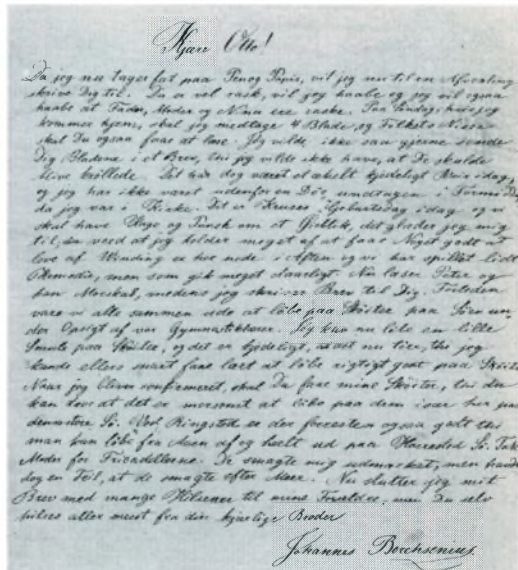 Kjære Otto!
Da jeg nu tager fat paa Pen og Papir, vil jeg nu til en Afvexling
skrive Dig til. Du er vel rask, vil jeg haabe og jeg vil ogsaa
haabe at Fader, Moder og Nina ere raske. Paa Lørdag, hvis jeg
kommer hjem, skal jeg medtage 4 Blade, og Folkets Nisse
skal Du ogsaa faae at læse. Jeg vilde ikke saa gjerne sende
Dig Bladene i et Brev, thi jeg vilde ikke have, at De skulde
blive krøllede. Det har dog været et kjedeligt Veir idag,
og jeg har ikke været udenfor en Dør, undtagen i Formiddag
da jeg var i Kirke. Det er Kruses Geburtsdag idag og vi
skal have Kage og Punsch om et Øieblik, det glæder jeg mig
til, Du veed at jeg holder meget af at faae Noget godt at
Winding er her nede i Aften og vi har spillet lidt
Komedie, men som gik meget daarligt. Nu læser Peter og
han medens jeg skriver Brev til Dig. Forleden
vare vi alle sammen ude at løbe paa Skøiter paa Søen un-
der Opsigt af vor Gymnastiklærer. Jeg kan nu løbe en lille
Smule paa Skøiter, og det er kjedeligt, at det nu tøer, thi jeg
kunde ellers snart have lært at løbe rigtigt godt paa Skøiter
Naar jeg bliver confirmeret, skal Du faae mine Skøiter, thi Du
kan troe at det er morsomt at løbe paa dem især her paa
denne store Sø. Ved Ringsted er der forresten ogsaa godt thi
man kan løbe fra Aaen af og heelt ud paa Haraldsted Sø. Tak
Moder for Fricadellerne. De smagte mig udmærket, men havde
dog en Feil, at de smagte efter Meer. Nu slutter jeg mit
Brev med mange Hilsener til mine Forældre, men Du selv
hilses aller meest fra din kjærlige Broder
Johannes Borchsenius.